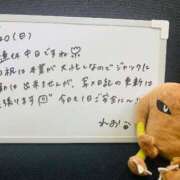 0(日)
連休中日ですね
日祝は本業が大忙しなのでジャックに
は出来ませんが、写メ日記の更新は
張ります
今日も1日ご安全に〜!